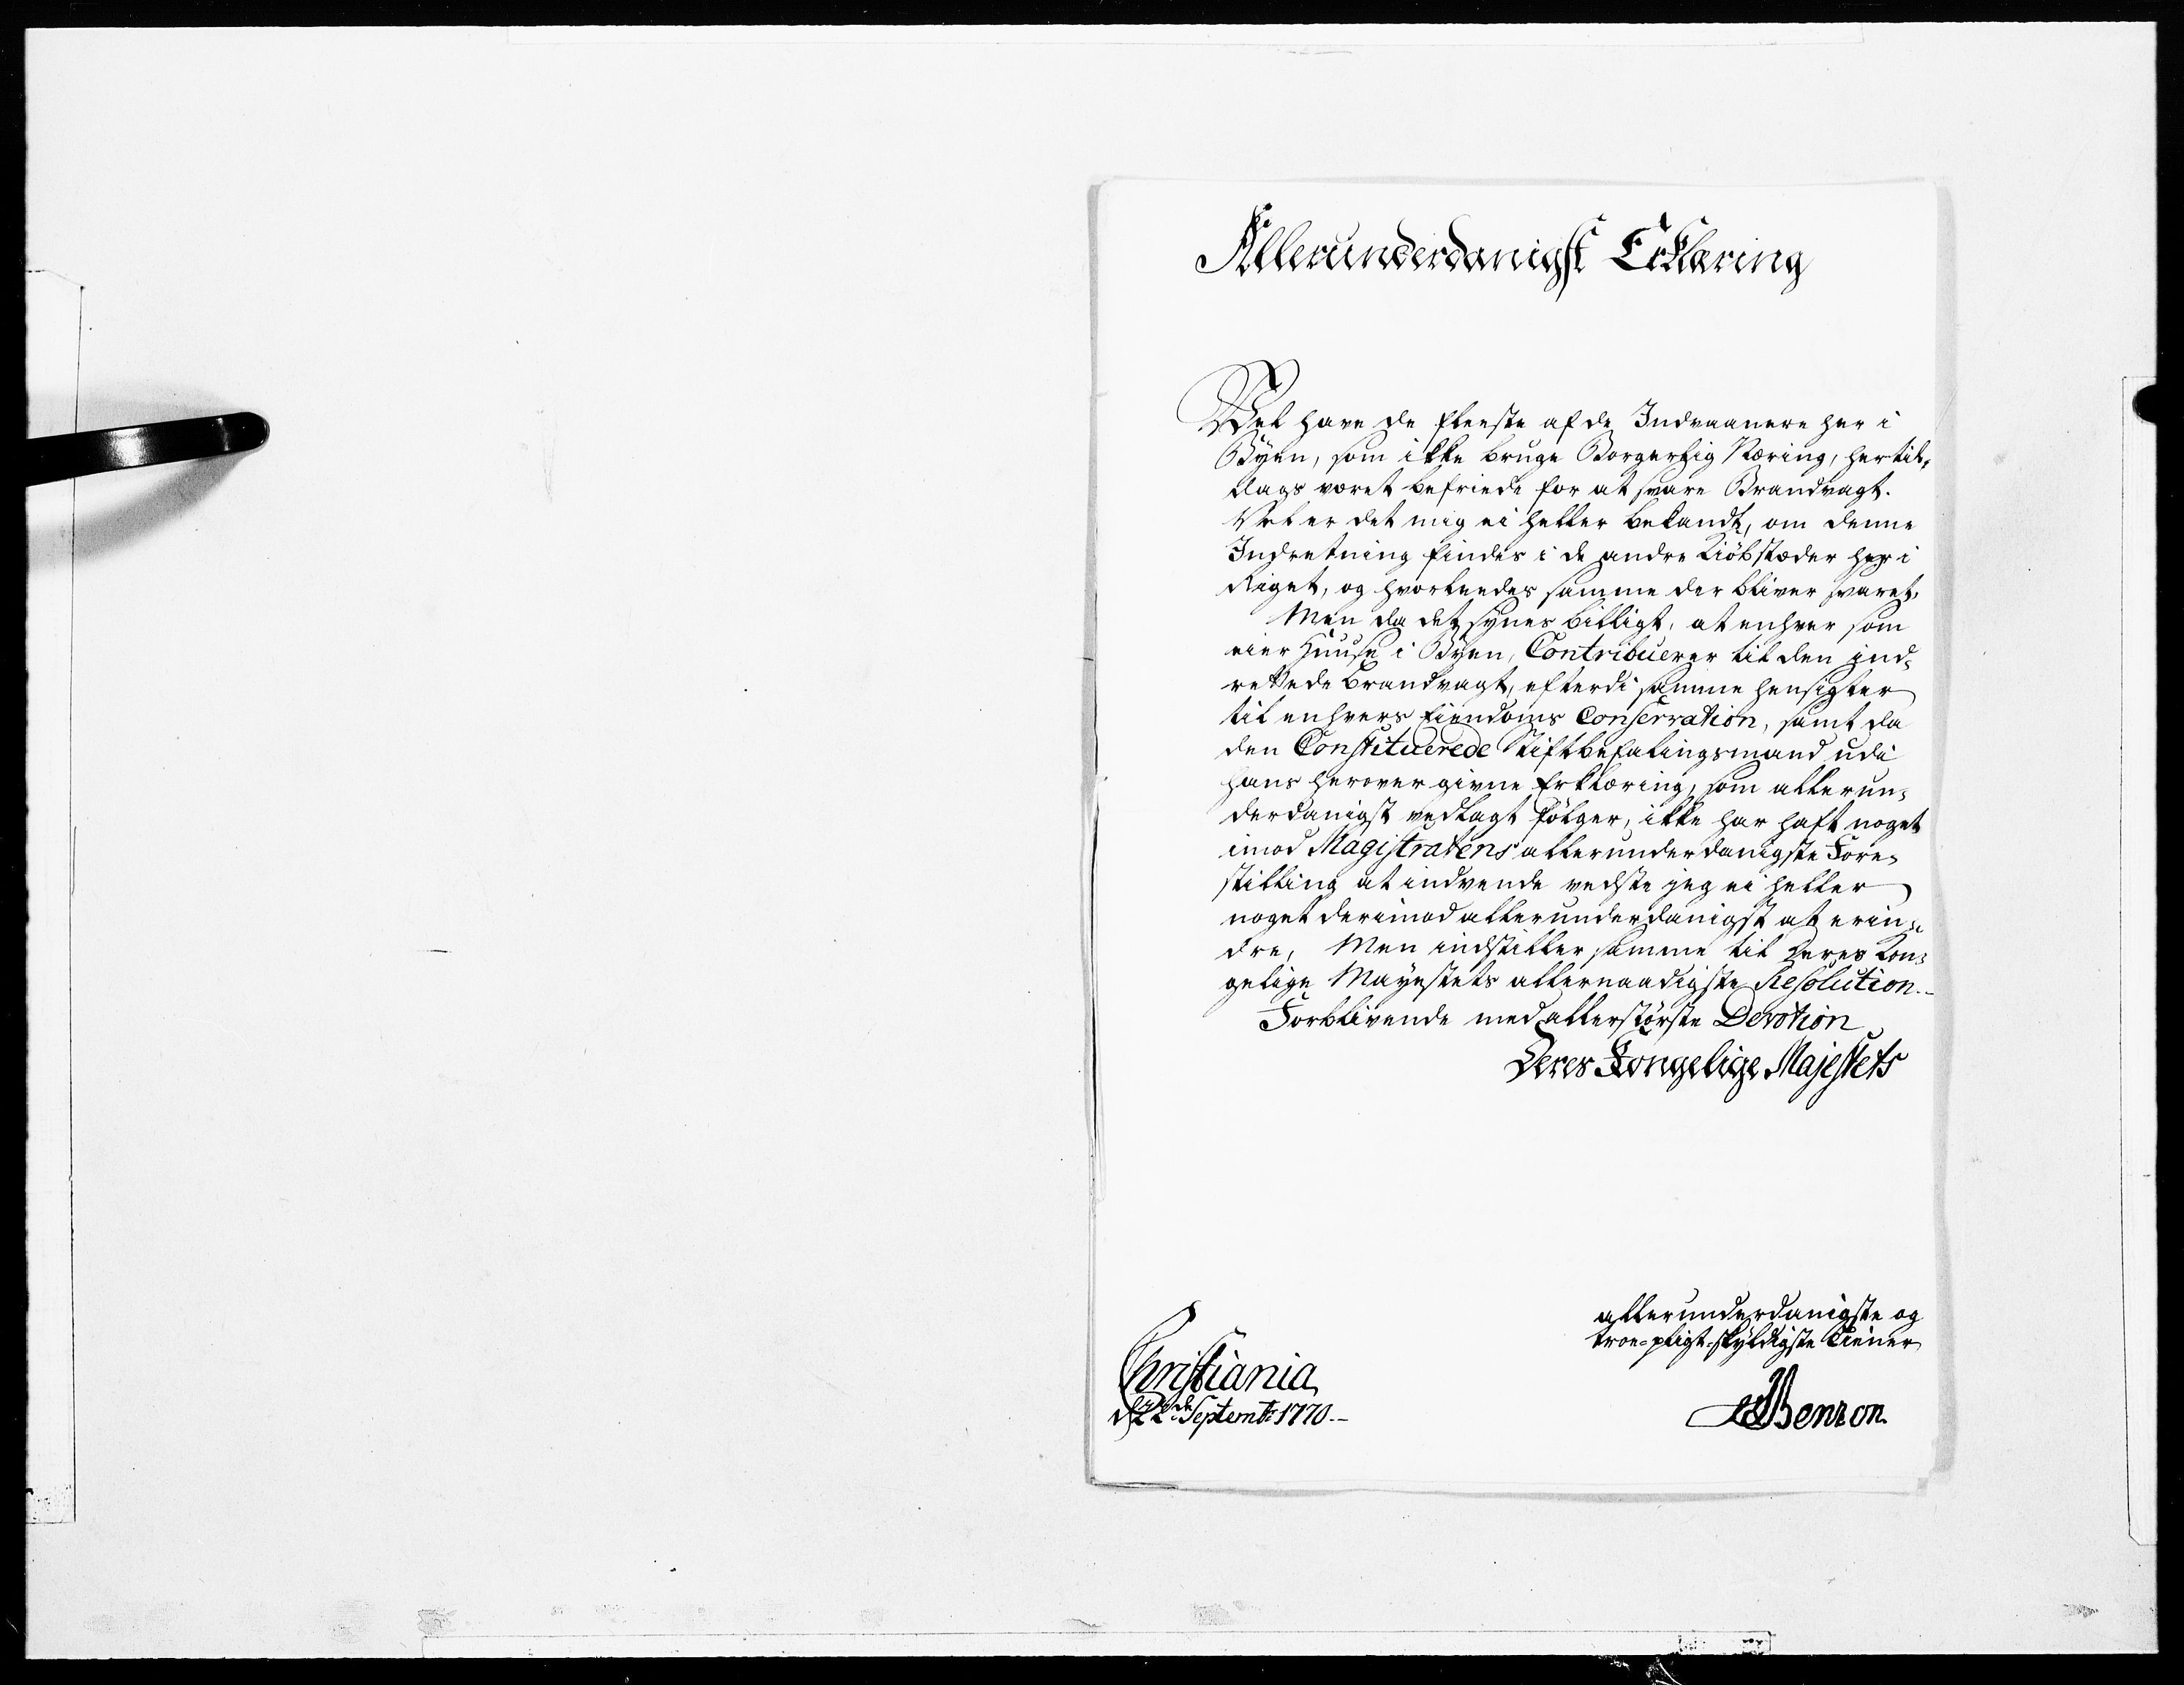 Allerunderdanigst Erklæring
Vel have de fleeste af de Indvaanere her i
Byen, som ikke bruge Borgerlig Næring, her til-
dags været befriede for at svare Brandvagt.
Vel er det mig ei heller bekandt, om denne
Indretning findes i de andre Kiöbstæder her i
Riget, og hvorleedes samme der bliver svaret,
Men da det synes billigt, at enhver som
eier Huuse i Byen, Contribuerer til den ind-
rettede Brandvagt, efterdi samme hensigter
til enhvers Eiendoms Conservation, samt da
den Constituerede Stiftbefalingsmand udi
hans herover givne Erklæring, som allerun-
derdanigst vedlagt fölger, ikke har haft noget
imod Magistratens allerunderdanigste Fore-
stilling at indvende vedste jeg ei heller
noget derimod allerunderdanigst at erin-
dre, Men indstiller samme til Deres Kon-
gelige Mayestets allernaadigste Resolution.
Forblivende med allerstörste Devotion
Deres Kongelige Majestets
allerunderdanigste og
troe-pligt-skyldigste Tiener
Christiania
d 22de Septembr 1770.
Benzon